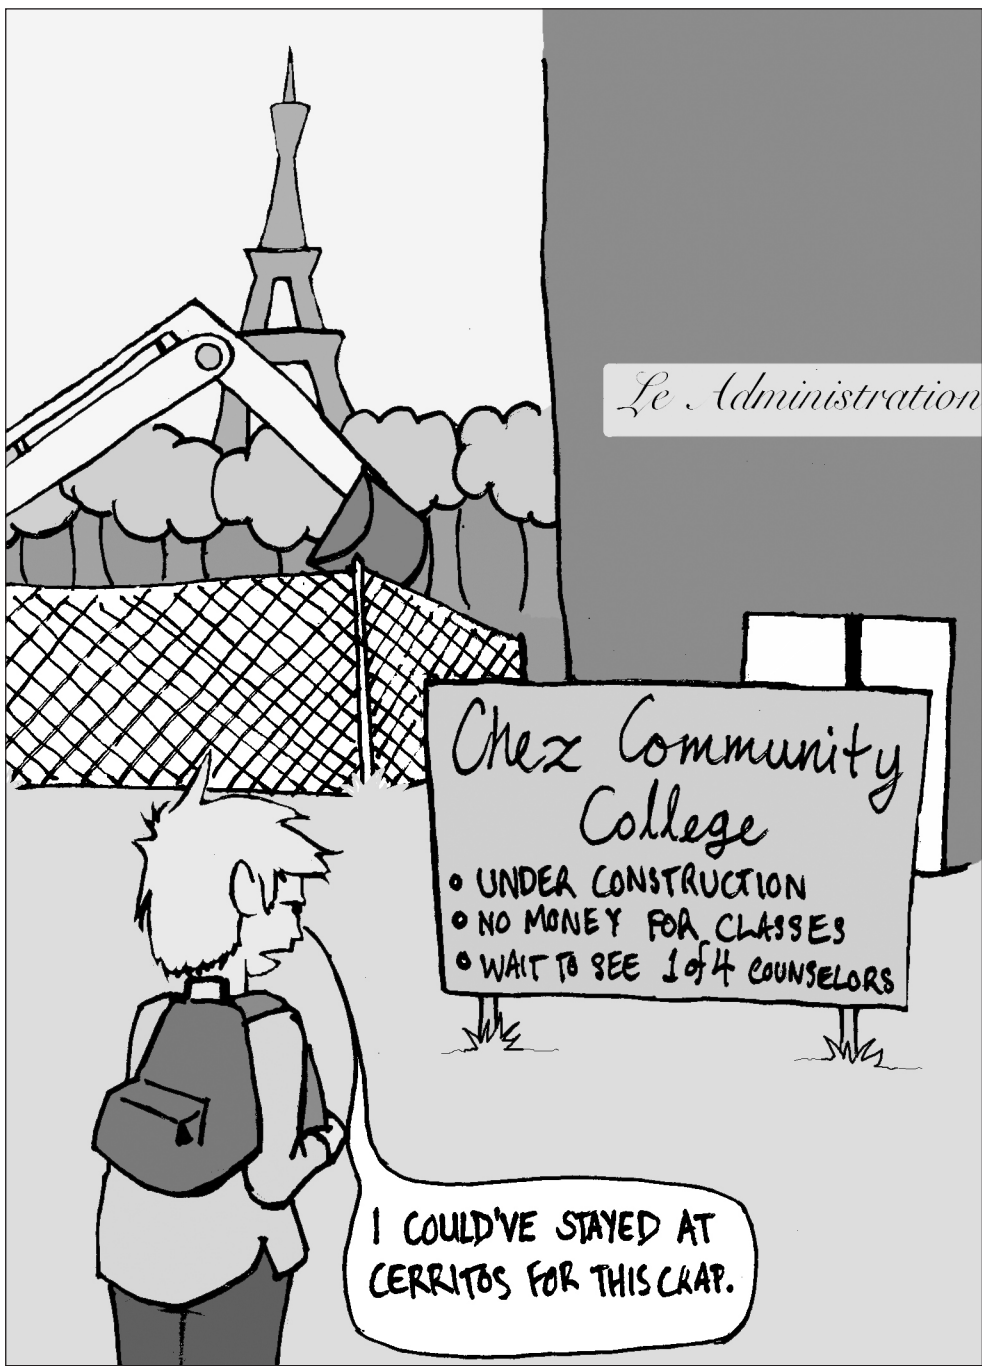 Le Administration
Chez Community
College
• UNDER CONSTRUCTION
• NO MONEY FOR CLASSES
• WAIT TO SEE 1 of 4 COUNSELORS
I COULD'VE STAYED AT
CERRITOS FOR THIS CRAP.